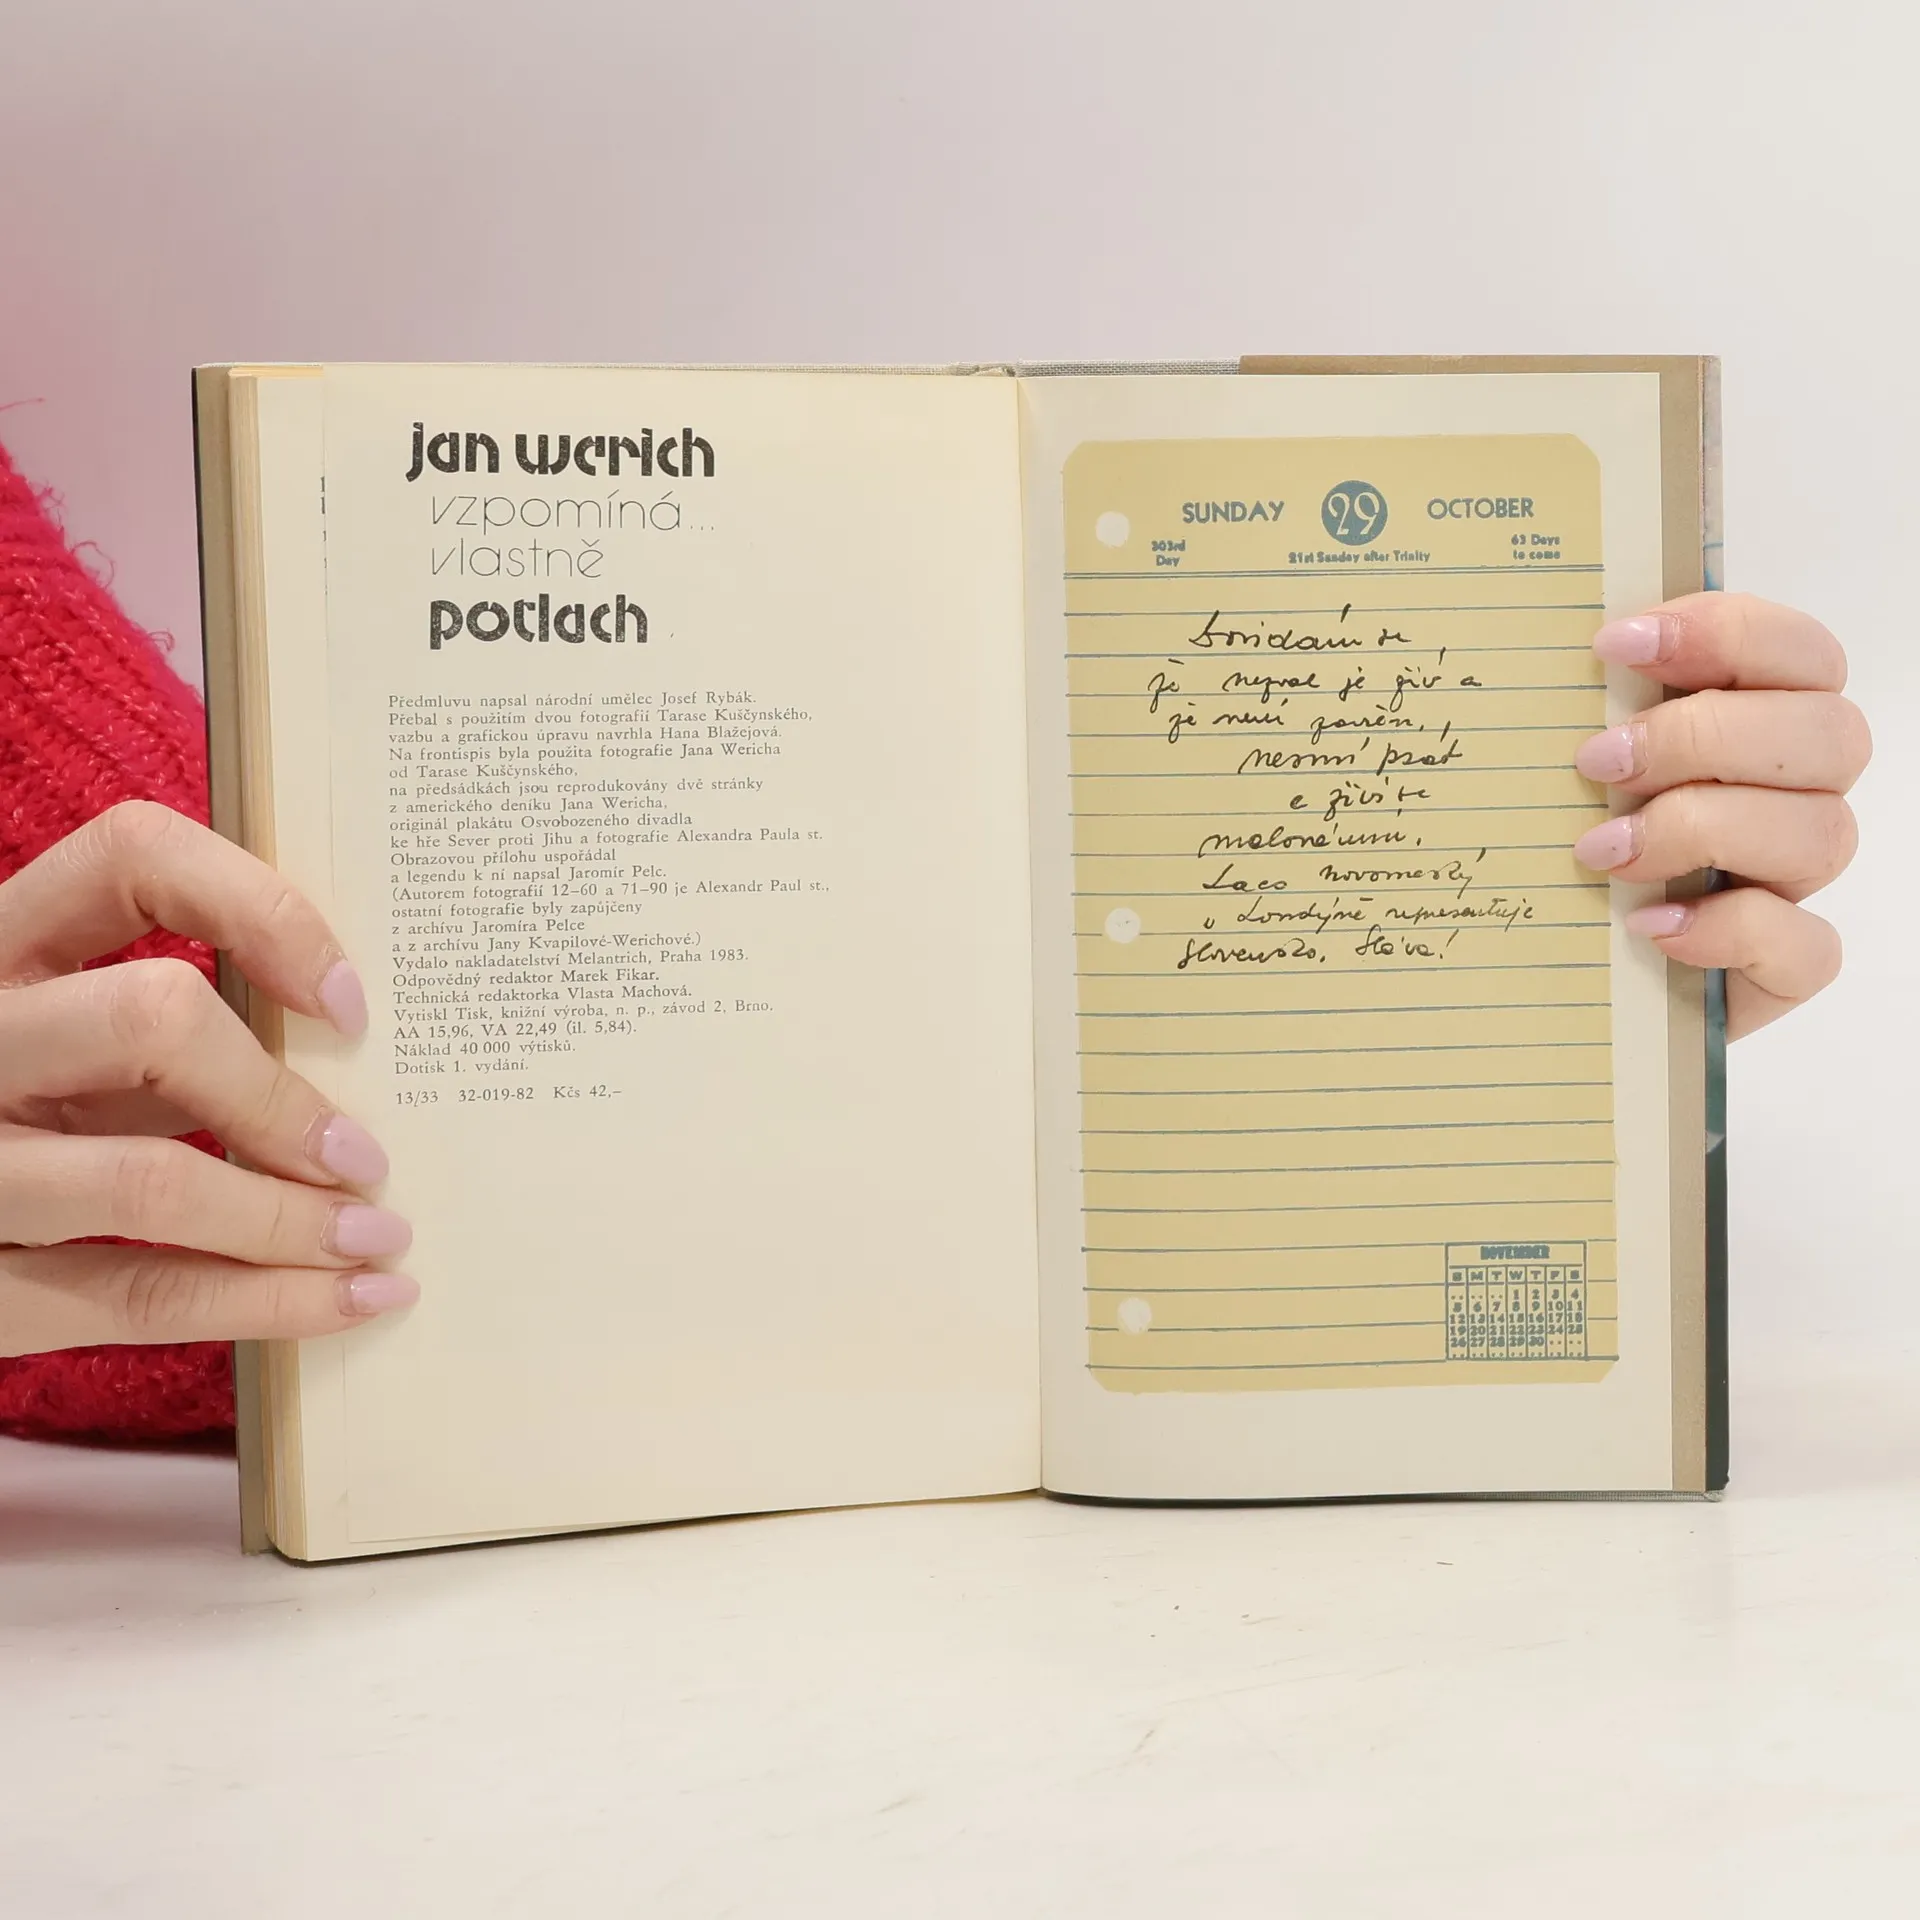 jan werich
vzpomíná...
vlastně
potlach
Předmluvu napsal národní umělec Josef Rybák.
Přebal s použitím dvou fotografií Tarase Kuščynského,
vazbu a grafickou úpravu navrhla Hana Blažejová.
Na frontispis byla použita fotografie Jana Wericha
od Tarase Kuščynského,
na předsádkách jsou reprodukovány dvě stránky
z amerického deníku Jana Wericha,
originál plakátu Osvobozeného divadla
ke hře Sever proti Jihu a fotografie Alexandra Paula st.
Obrazovou přílohu uspořádal
a legendu k ní napsal Jaromír Pelc.
(Autorem fotografií 12–60 a 71–90 je Alexandr Paul st.,
ostatní fotografie byly zapůjčeny
z archívu Jaromíra Pelce
a z archívu Jany Kvapilové-Werichové.)
Vydalo nakladatelství Melantrich, Praha 1983.
Odpovědný redaktor Marek Fikar.
Technická redaktorka Vlasta Machová.
Vytiskl Tisk, knižní výroba, n. p., závod 2, Brno.
AA 15,96, VA 22,49 (il. 5,84).
Náklad 40 000 výtisků.
Dotisk 1. vydání.
13/33 32-019-82 Kčs 42,–
SUNDAY 29 OCTOBER
303rd Day
21st Sunday after Trinity
63 Days to come
Dovídám se,
že nezval je živ a
že není zavřen,
nesmí psát
a živí se
malováním.
Laco novomeský
v Londýně representuje
Slovensko. Sláva!
NOVEMBER
S M T W T F S
.. .. .. 1 2 3 4
5 6 7 8 9 10 11
12 13 14 15 16 17 18
19 20 21 22 23 24 25
26 27 28 29 30 .. ..